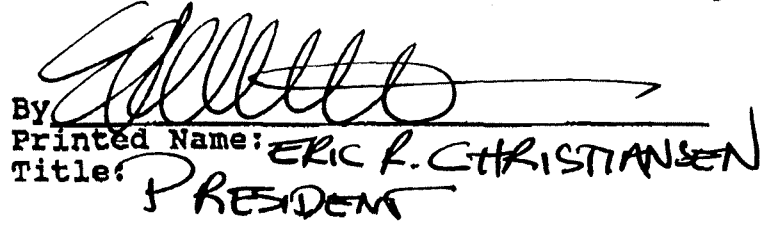 By
Printed Name: ERIC R. CHRISTIANSEN
Title: PRESIDENT